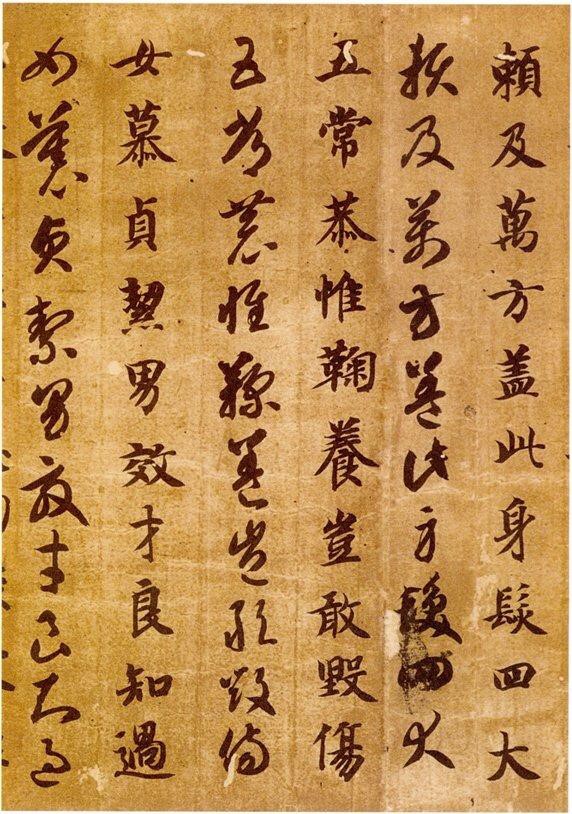 賴及萬方蓋此身髮四大
賴及萬方蓋此身髮四大
五常恭惟鞠養豈敢毀傷
五常恭惟鞠養豈敢毀傷
女慕貞絜男效才良知過
女慕貞絜男效才良知過